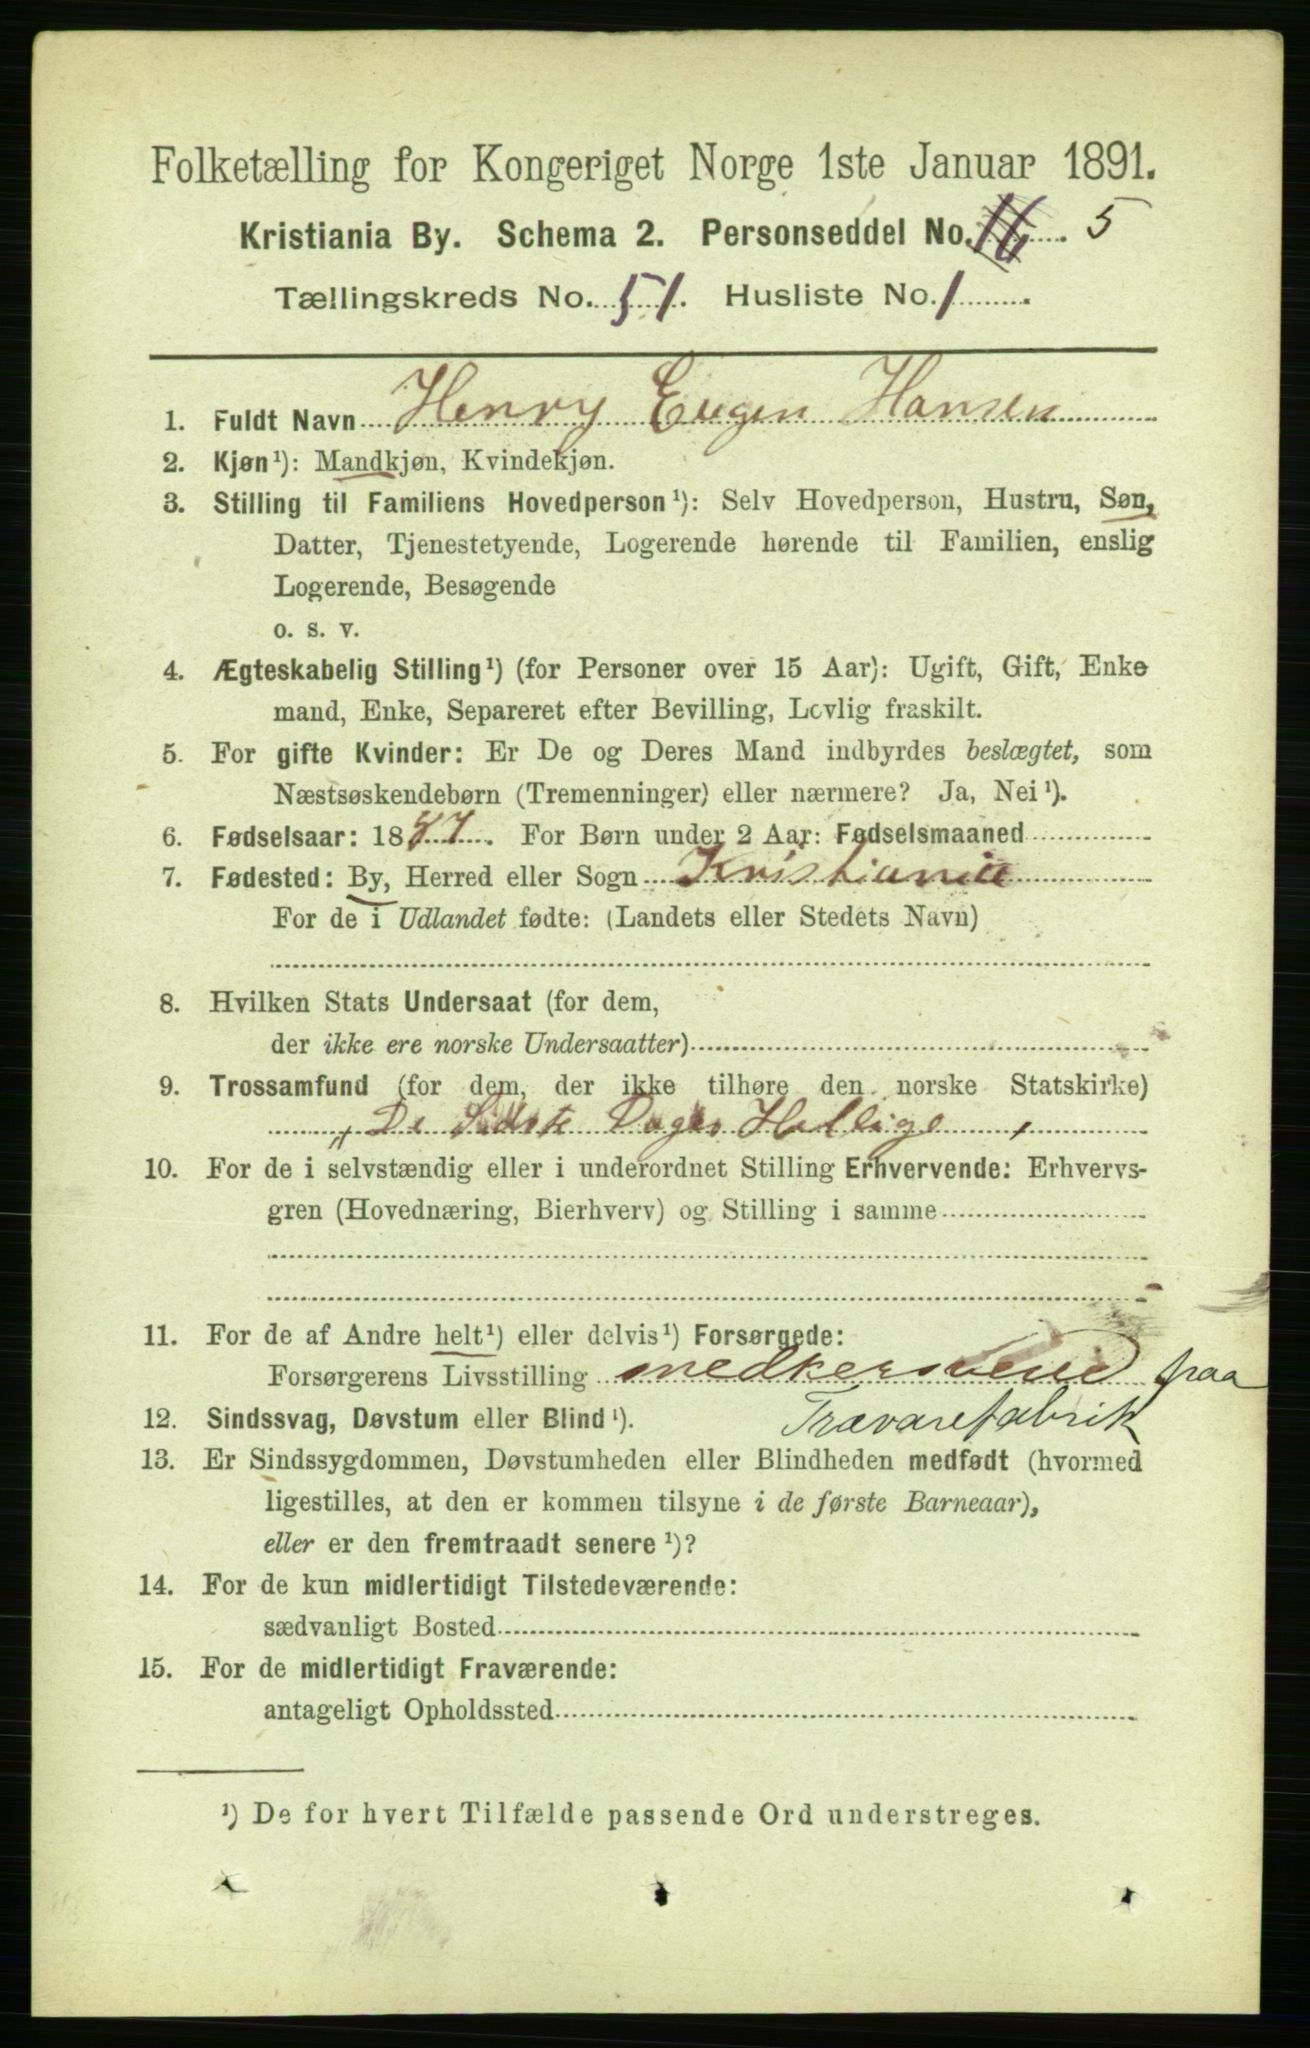 Folketælling for Kongeriget Norge 1ste Januar 1891.
Kristiania By. Schema 2. Personseddel No. 16. 5
Tællingskreds No. 51. Husliste No. 1.
1. Fuldt Navn Henry Eugen Hansen
2. Kjøn¹): Mandkjøn, Kvindekjøn.
3. Stilling til Familiens Hovedperson¹): Selv Hovedperson, Hustru, Søn,
Datter, Tjenestetyende, Logerende hørende til Familien, enslig
Logerende, Besøgende
o. s. v.
4. Ægteskabelig Stilling¹) (for Personer over 15 Aar): Ugift, Gift, Enke
mand, Enke, Separeret efter Bevilling, Lovlig fraskilt.
5. For gifte Kvinder: Er De og Deres Mand indbyrdes beslægtet, som
Næstsøskendebørn (Tremenninger) eller nærmere? Ja, Nei¹).
6. Fødselsaar: 1887. For Børn under 2 Aar: Fødselsmaaned
7. Fødested: By, Herred eller Sogn Kristiania
For de i Udlandet fødte: (Landets eller Stedets Navn)
8. Hvilken Stats Undersaat (for dem,
der ikke ere norske Undersaatter)
9. Trossamfund (for dem, der ikke tilhøre den norske Statskirke)
„De Sidste Dages Hellige,
10. For de i selvstændig eller i underordnet Stilling Erhvervende: Erhvervs-
gren (Hovednæring, Bierhverv) og Stilling i samme
11. For de af Andre helt¹) eller delvis¹) Forsørgede:
Forsørgerens Livsstilling paa
12. Sindssvag, Døvstum eller Blind¹). Trævarefabrik
13. Er Sindssygdommen, Døvstumheden eller Blindheden medfødt (hvormed
ligestilles, at den er kommen tilsyne i de første Barneaar),
eller er den fremtraadt senere¹)?
14. For de kun midlertidigt Tilstedeværende:
sædvanligt Bosted
15. For de midlertidigt Fraværende:
antageligt Opholdssted
¹) De for hvert Tilfælde passende Ord understreges.